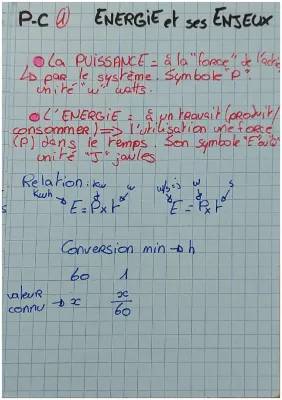 P-C ① ENERGIE et ses ENJEUX
La PUISSANCE = à la "force" de l'acte
↳ par le système. Symbole "P"
unité "W" watts.
L'ENERGIE : à un travail (produit/
consommer) => l'utilisation une force
(P) dans le temps. Son symbole "E"
unité "J" joules
Relation : kW
kWh h W/s=J W s
E = P x t E = P x t
Conversion min → h
60 1
valeur x
connu → x 60